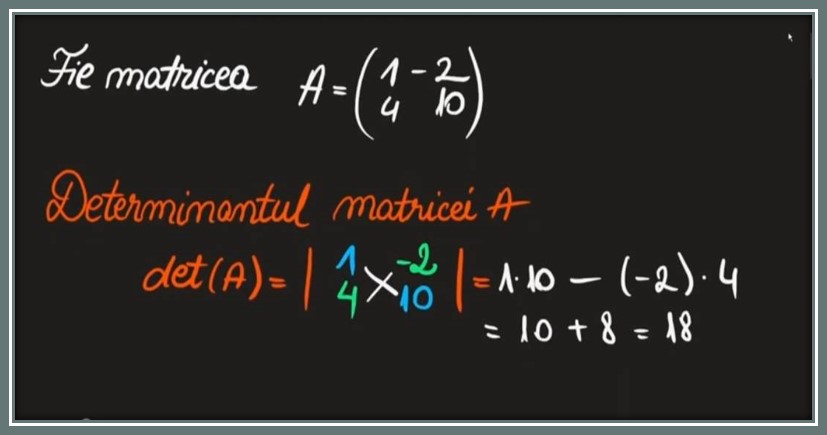 Fie matricea A = (1 -2
4 10)
Determinantul matricei A
det(A) = | 1 -2
4 10 | = 1·10 - (-2)·4
= 10 + 8 = 18